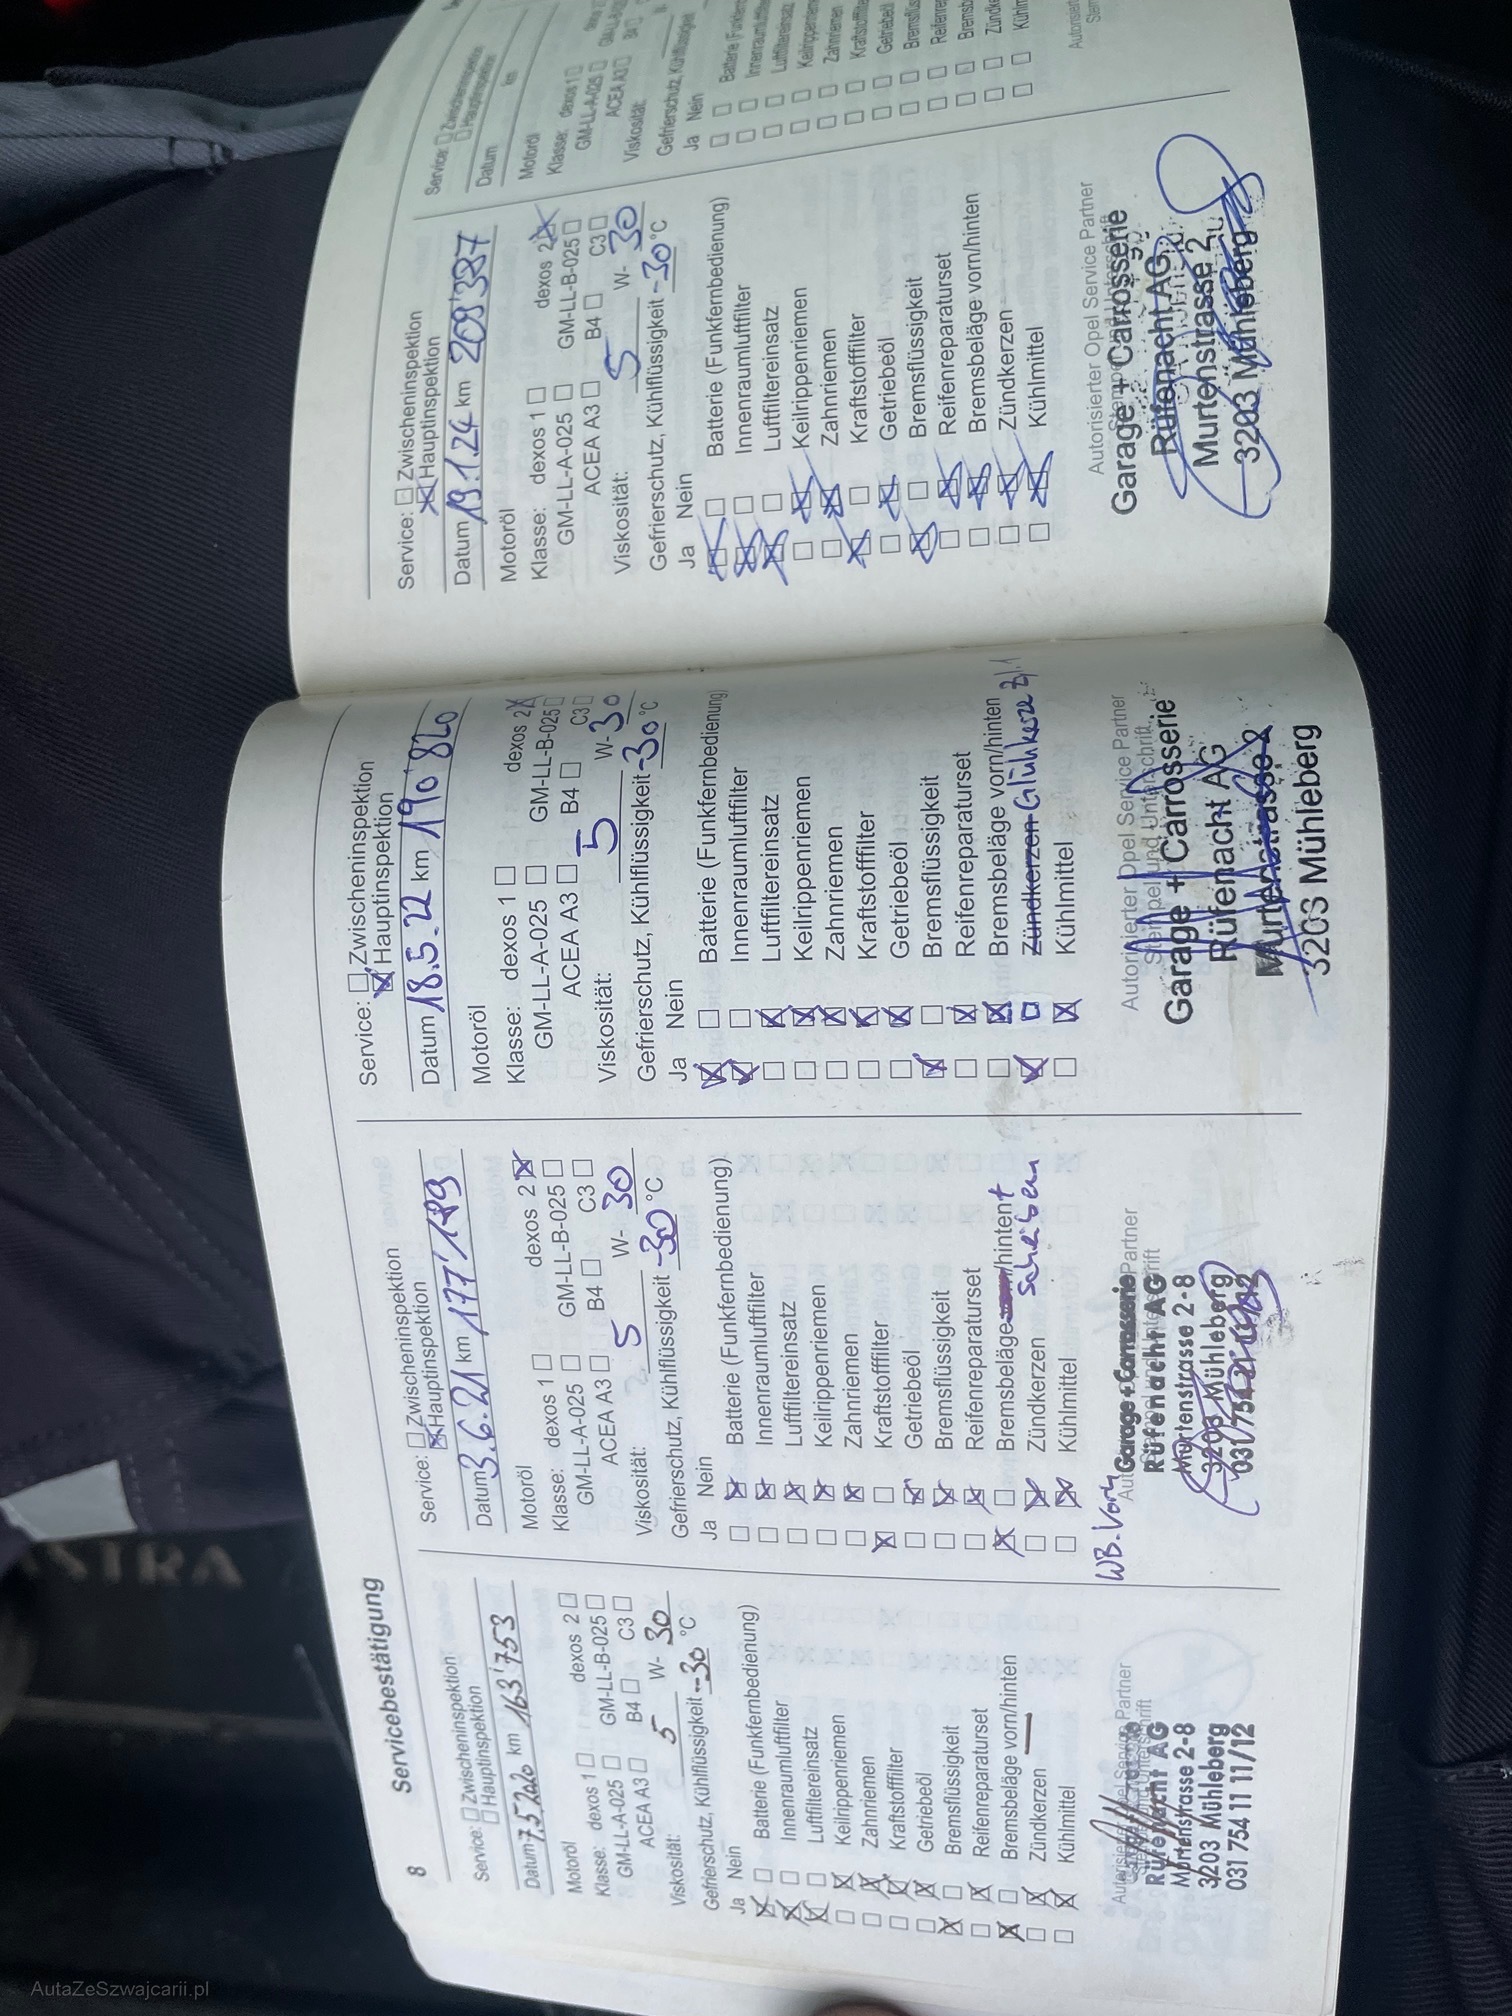 8 Servicebestätigung
Service: Zwischeninspektion
Hauptinspektion
Datum 7.5.2020 km 163'753
Motoröl
Klasse: dexos 1 dexos 2
GM-LL-A-025 GM-LL-B-025
ACEA A3 B4 C3
Viskosität: 5 W- 30
Gefrierschutz, Kühlflüssigkeit -30 °C
Ja Nein
Batterie (Funkfernbedienung)
Innenraumluftfilter
Luftfiltereinsatz
Keilrippenriemen
Zahnriemen
Kraftstofffilter
Getriebeöl
Bremsflüssigkeit
Reifenreparaturset
Bremsbeläge vorn/hinten
Zündkerzen
Kühlmittel
Rüfenacht AG
Murtenstrasse 2-8
3203 Mühleberg
031 754 11 11/12
Service: Zwischeninspektion
Hauptinspektion
Datum 3.6.21 km 177'189
Motoröl
Klasse: dexos 1 dexos 2
GM-LL-A-025 GM-LL-B-025
ACEA A3 B4 C3
Viskosität: 5 W- 30
Gefrierschutz, Kühlflüssigkeit -30 °C
Ja Nein
Batterie (Funkfernbedienung)
Innenraumluftfilter
Luftfiltereinsatz
Keilrippenriemen
Zahnriemen
Kraftstofffilter
Getriebeöl
Bremsflüssigkeit
Reifenreparaturset
Bremsbeläge /hinten +
Zündkerzen Scheiben
Kühlmittel
WB. Vorh
Garage + Carrosserie
Rüfenacht AG
Murtenstrasse 2-8
3203 Mühleberg
031/754 11 11/12
Service: Zwischeninspektion
Hauptinspektion
Datum 18.5.22 km 190'820
Motoröl
Klasse: dexos 1 dexos 2
GM-LL-A-025 GM-LL-B-025
ACEA A3 B4 C3
Viskosität: 5 W- 30
Gefrierschutz, Kühlflüssigkeit -30 °C
Ja Nein
Batterie (Funkfernbedienung)
Innenraumluftfilter
Luftfiltereinsatz
Keilrippenriemen
Zahnriemen
Kraftstofffilter
Getriebeöl
Bremsflüssigkeit
Reifenreparaturset
Bremsbeläge vorn/hinten
Zündkerzen Glühkerze Zyl.1
Kühlmittel
Autorisierter Opel Service Partner
Stempel und Unterschrift
Garage + Carrosserie
Rüfenacht AG
Murtenstrasse 2
3203 Mühleberg
Service: Zwischeninspektion
Hauptinspektion
Datum 19.1.24 km 209'387
Motoröl
Klasse: dexos 1 dexos 2
GM-LL-A-025 GM-LL-B-025
ACEA A3 B4 C3
Viskosität: 5 W- 30
Gefrierschutz, Kühlflüssigkeit -30 °C
Ja Nein
Batterie (Funkfernbedienung)
Innenraumluftfilter
Luftfiltereinsatz
Keilrippenriemen
Zahnriemen
Kraftstofffilter
Getriebeöl
Bremsflüssigkeit
Reifenreparaturset
Bremsbeläge vorn/hinten
Zündkerzen
Kühlmittel
Autorisierter Opel Service Partner
Garage + Carrosserie
Rüfenacht AG
Murtenstrasse 2
3203 Mühleberg
Service: Zwischeninspektion
Hauptinspektion
Datum km
Motoröl
Klasse: dexos 1
GM-LL-A-025
ACEA A3
Viskosität:
Gefrierschutz,
Ja Nein
Batterie
Zahnriemen
Kraftstofffilter
Getriebeöl
ASTRA
AutaZeSzwajcarii.pl